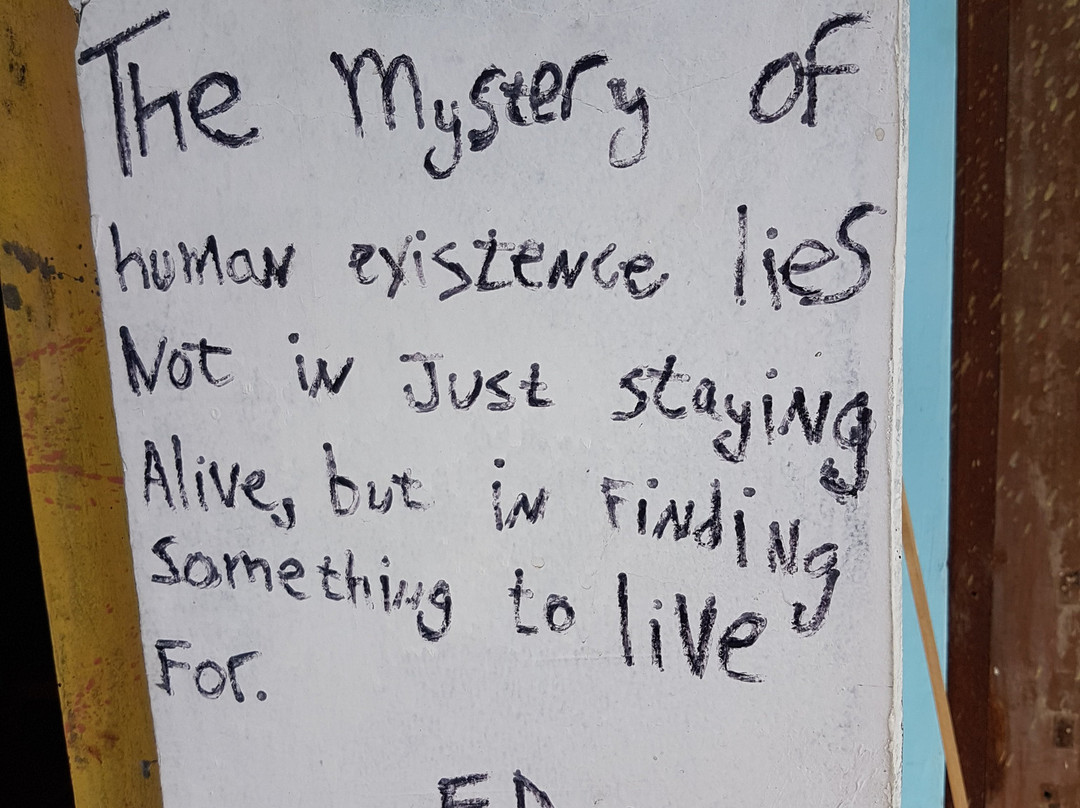 The Mystery of
human existence lies
Not in Just staying
Alive, but in Finding
Something to live
For.